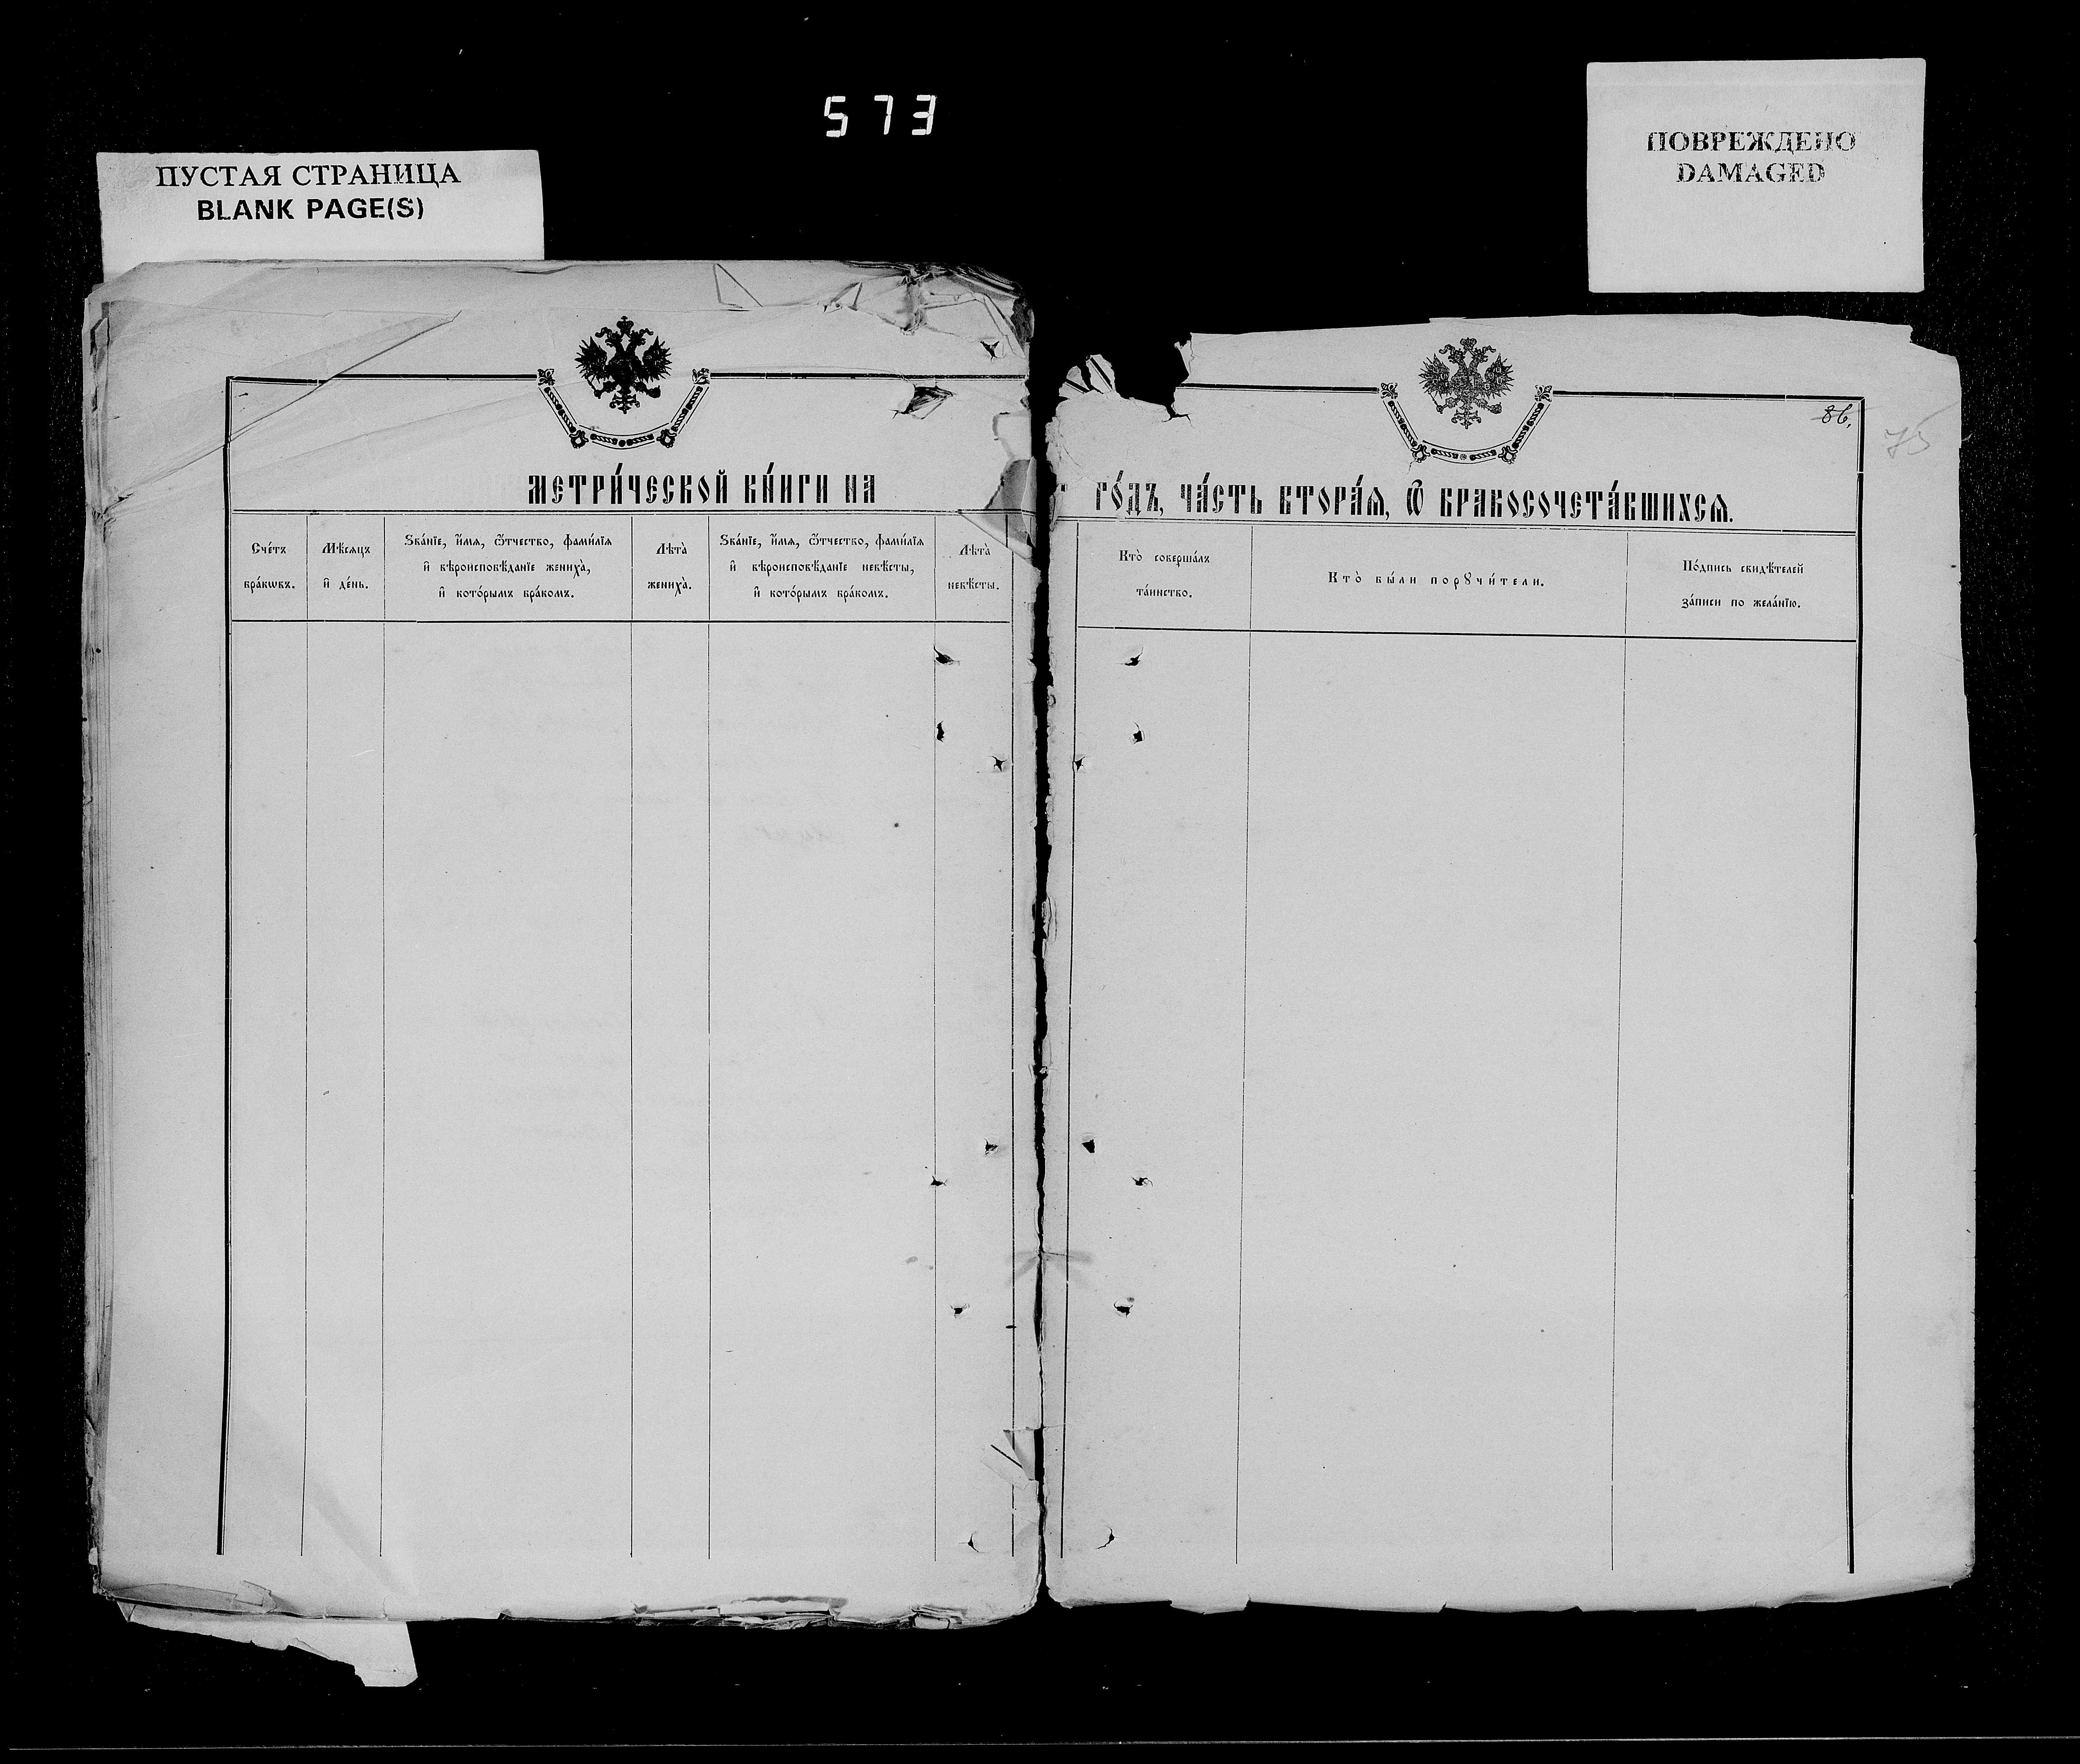 573
ПУСТАЯ СТРАНИЦА
BLANK PAGE(S)
ПОВРЕЖДЕНО
DAMAGED
86.
75
метри́ческой кни́ги на
го́дъ, ча́сть втора́ѧ, ѽ бракосочета́вшихсѧ.
Сче́тъ
бра́кωвъ.
Мѣ́сѧцъ
и҆ де́нь.
Ѕва́нїе, и҆́мѧ, ѻ҆́тчество, фами́лїѧ
и҆ вѣроисповѣ́данїе жениха̀,
и҆ кото́рымъ бра́комъ.
Лѣта̀
жениха̀.
Ѕва́нїе, и҆́мѧ, ѻ҆́тчество, фами́лїѧ
и҆ вѣроисповѣ́данїе невѣ́сты,
и҆ кото́рымъ бра́комъ.
Лѣта̀
невѣ́сты.
Кто̀ соверша́лъ
та́инство.
Кто̀ бы́ли порꙋчи́тели.
По́дпись свидѣ́телей
за́писи по жела́нїю.